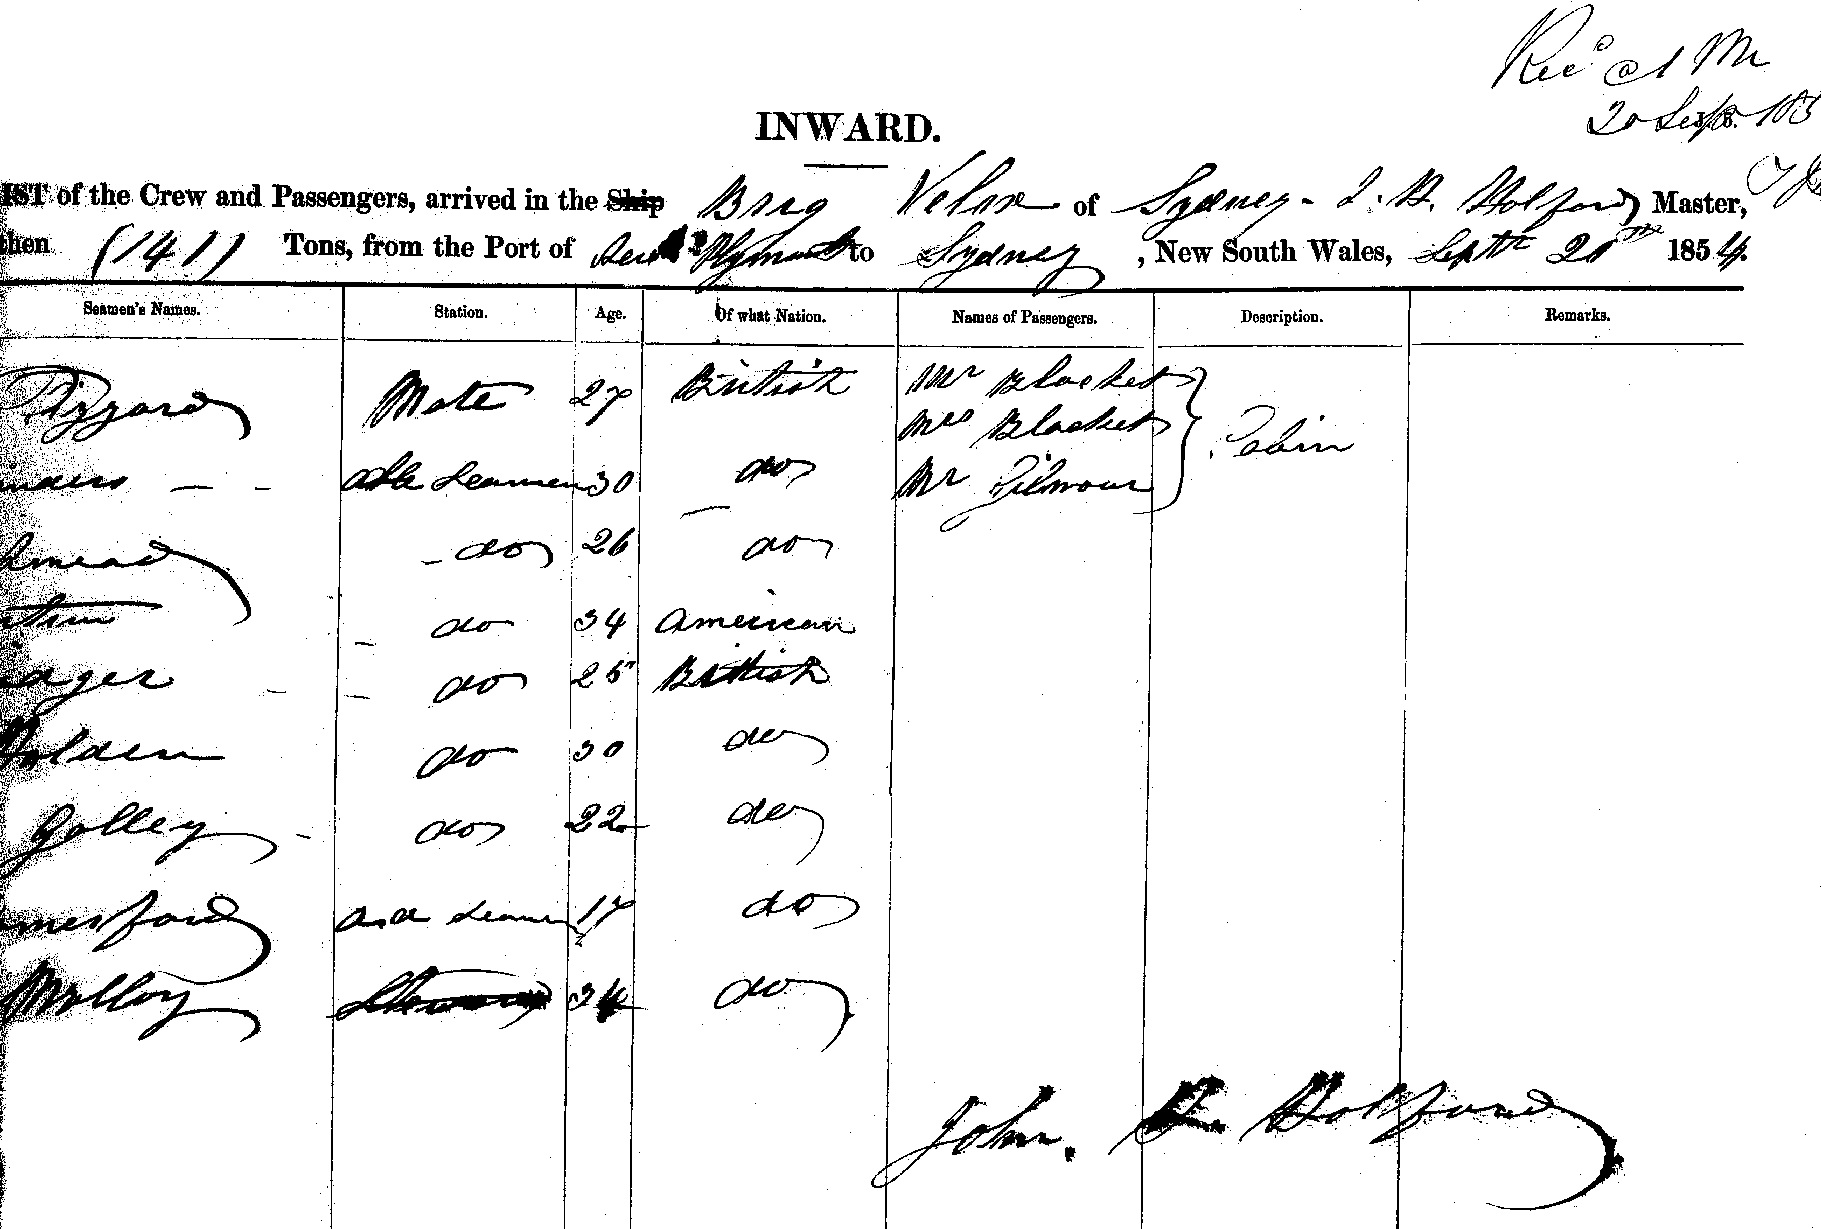 Rec'd
20 Sept. 185
INWARD.
IST of the Crew and Passengers, arrived in the Ship Brig Velox of Sydney - J. H. Holford Master,
then (141) Tons, from the Port of New Plymouth to Sydney, New South Wales, Septr 20th 1854.
Seamen's Names. Station. Age. Of what Nation. Names of Passengers. Description. Remarks.
Pizzard Mate 27 British Mr Blacket
Mrs Blacket Cabin
able Seamen 30 do Mr Gilmour
do 26 do
do 34 American
do 25 British
Holden do 30 do
Golley do 22 do
Seamen 17 do
Molloy Steward 34 do
John. H. Holford